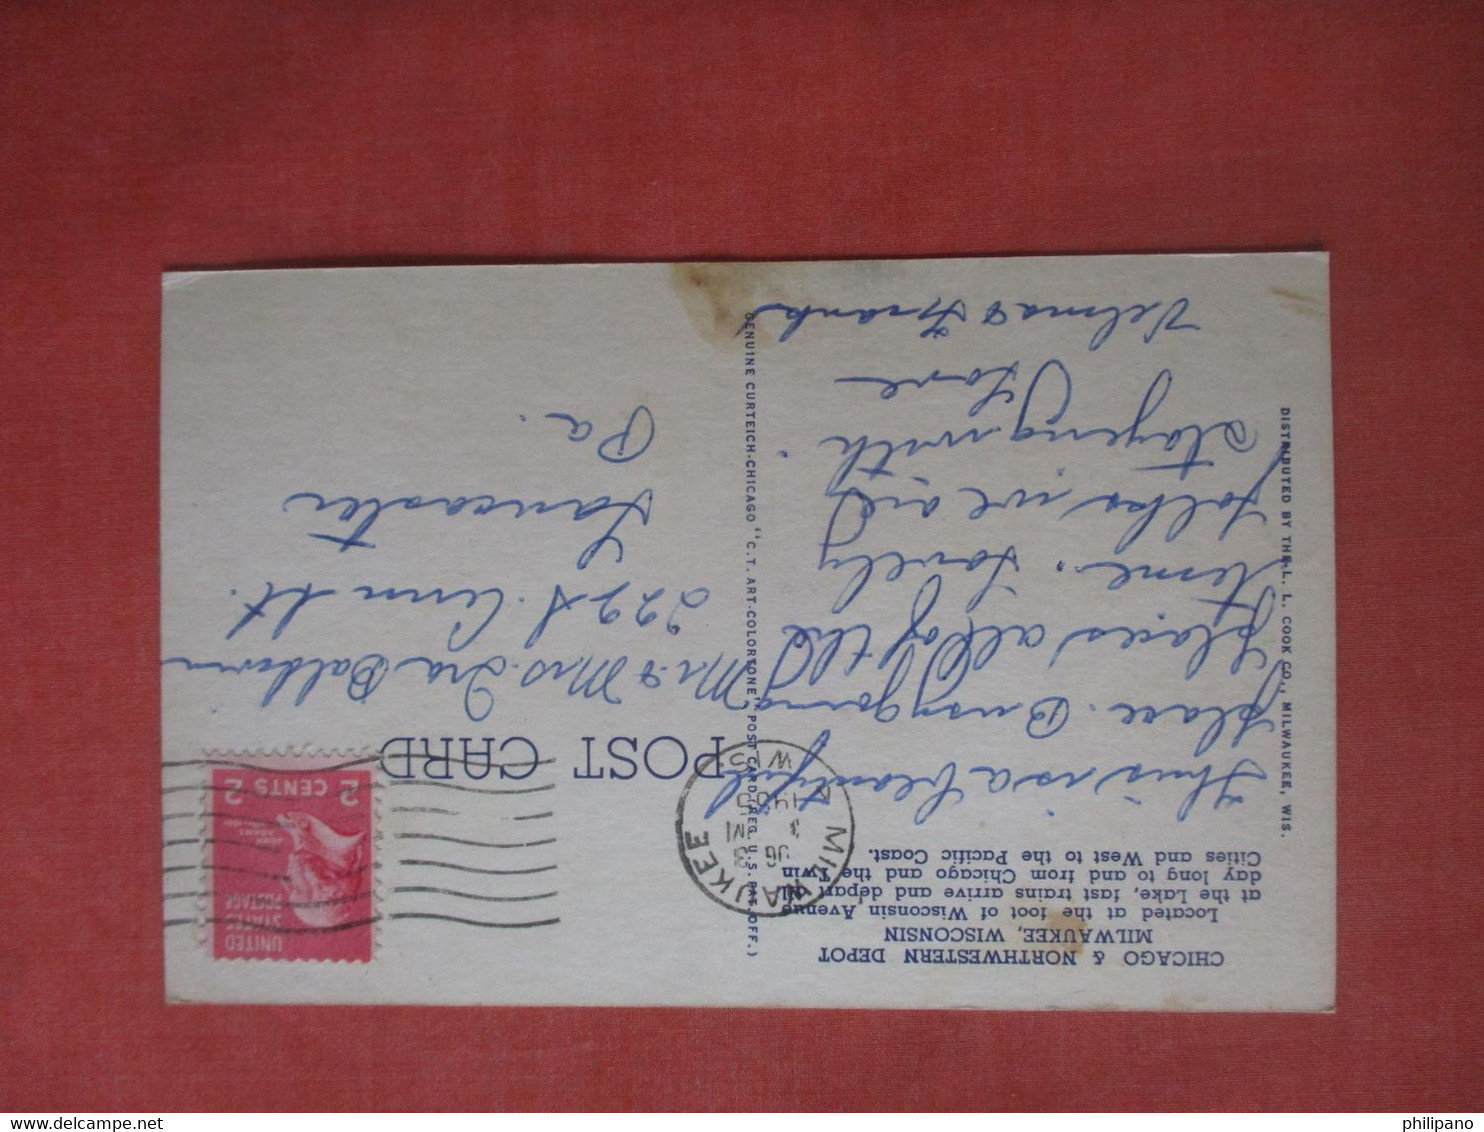 CHICAGO & NORTHWESTERN DEPOT
MILWAUKEE, WISCONSIN
Located at the foot of Wisconsin Avenue
at the Lake, fast trains arrive and depart all
day long to and from Chicago and the Twin
Cities and West to the Pacific Coast.
This is a beautiful
place. Busy going
places all of the
time. Lovely
folks we are
staying with.
Love
Velma & Frank
DISTRIBUTED BY THE L. L. COOK CO., MILWAUKEE, WIS.
GENUINE CURTEICH-CHICAGO "C. T. ART-COLORTONE" POST CARD (REG. U. S. PAT. OFF.)
POST CARD
MILWAUKEE
3
WIS.
UNITED
STATES
POSTAGE
JOHN
ADAMS
2 CENTS 2
Mr. & Mrs. Ira Baldwin
222 S. Ann St.
Lancaster
Pa.
philipano